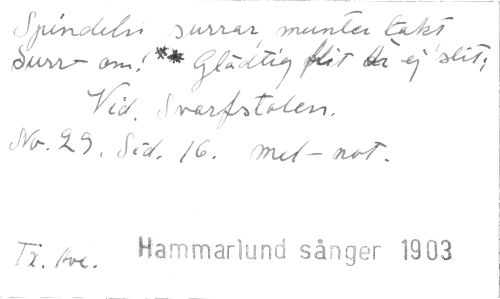 Spindeln surrar, munter takt
Surr om! ** Glädtig flit är ej slit;
Vid Svarfstolen.
No. 29. Sid. 16. mel-not.
Tx. Ave. Hammarlund sånger 1903